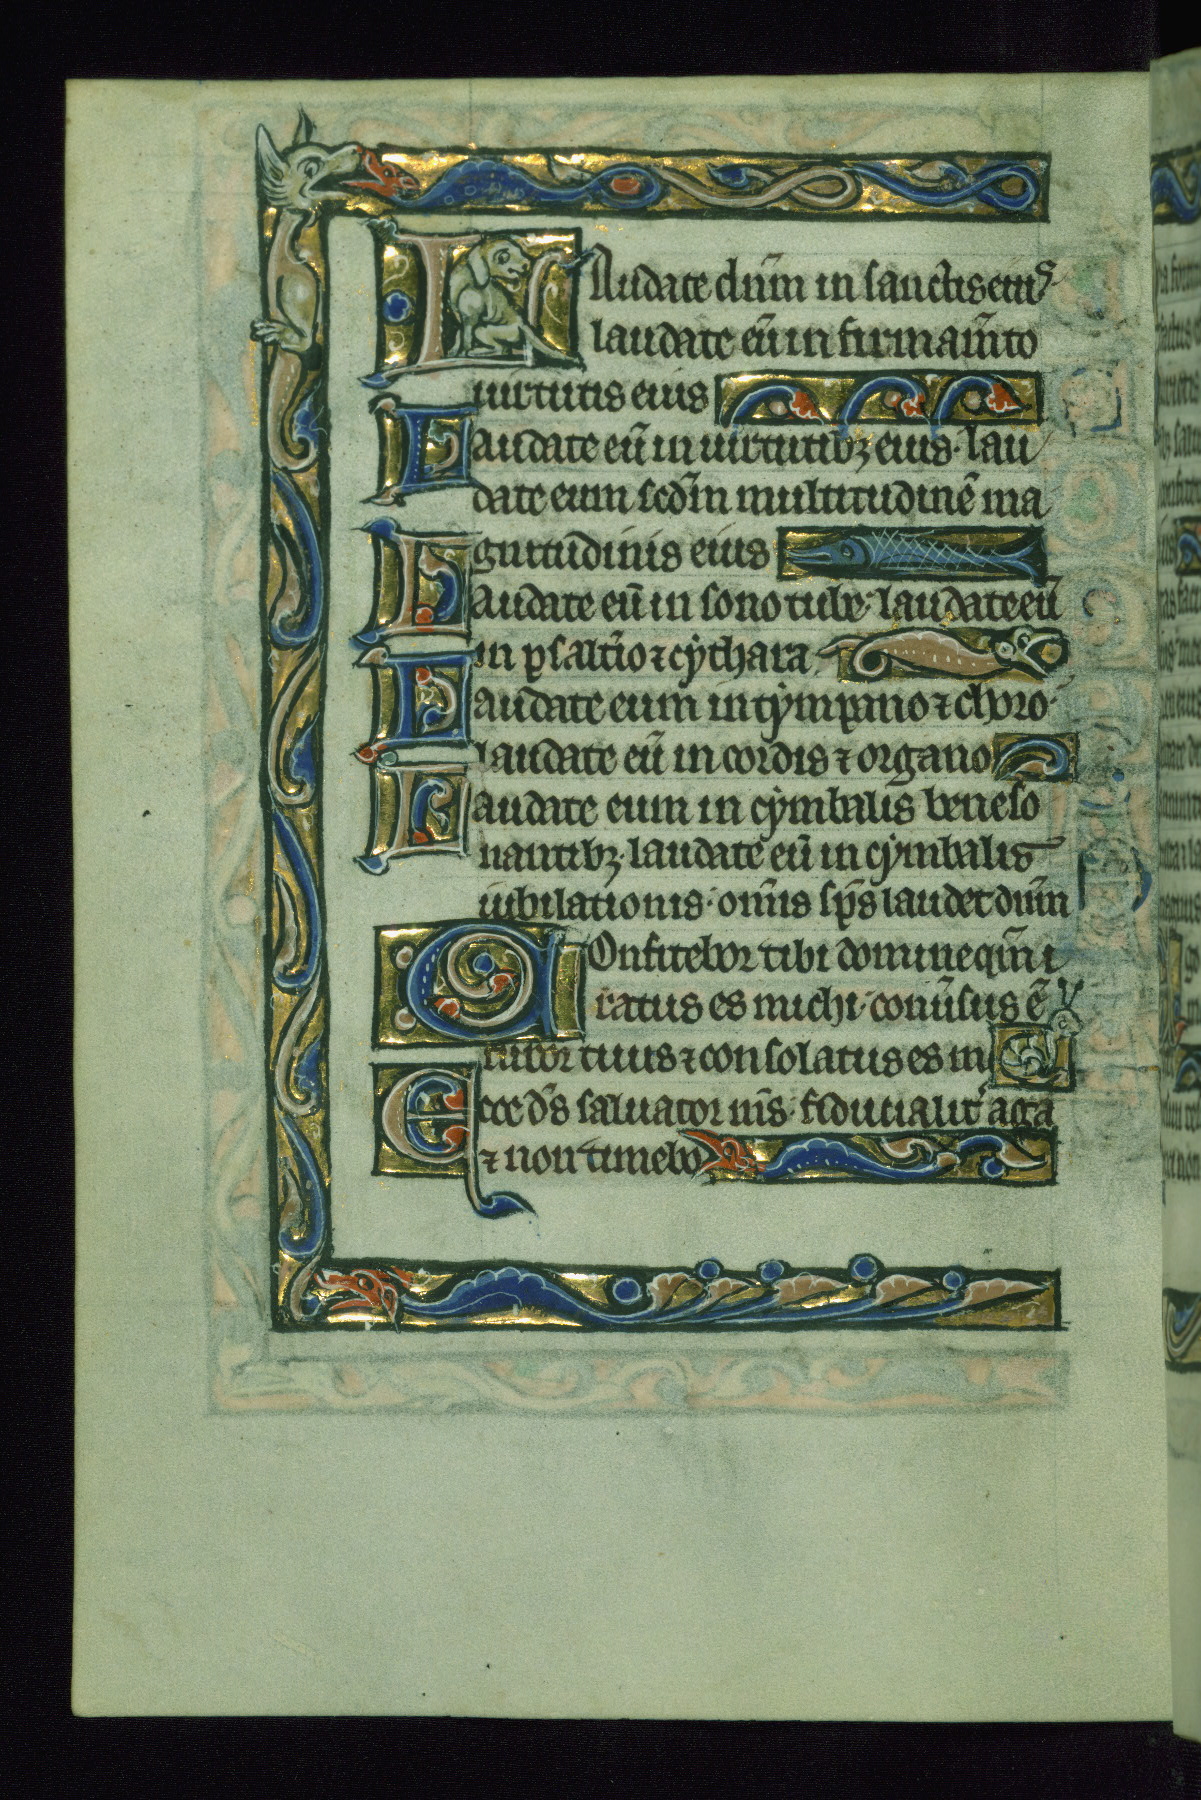 Laudate dn̄m in sanctis eius·
laudate eū in firmam̄to
uirtutis eius
Laudate eū in uirtutibꝫ eius· lau
date eum scd̄m multitudinē ma
gnitudinis eius
Laudate eū in sono tube· laudate eū
in psalt̄io ⁊ cythara
Laudate eum in tympano ⁊ choro·
laudate eū in cordis ⁊ organo
Laudate eum in cymbalis bene so
nantibꝫ· laudate eū in cymbalis
iubilationis· om̄is sp̄s laudet dn̄m
Confitebor tibi domine qm̄ i
ratus es michi· conū̄sus ē
furor tuus ⁊ consolatus es m
Ecce d̄s saluator m̄s· fiducialit̄ aga
⁊ non timebo